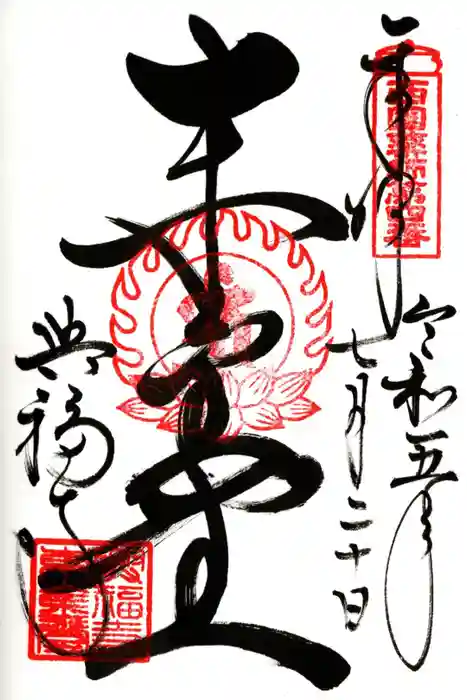 奉拝
令和五年
七月二十日
東金堂
興福寺